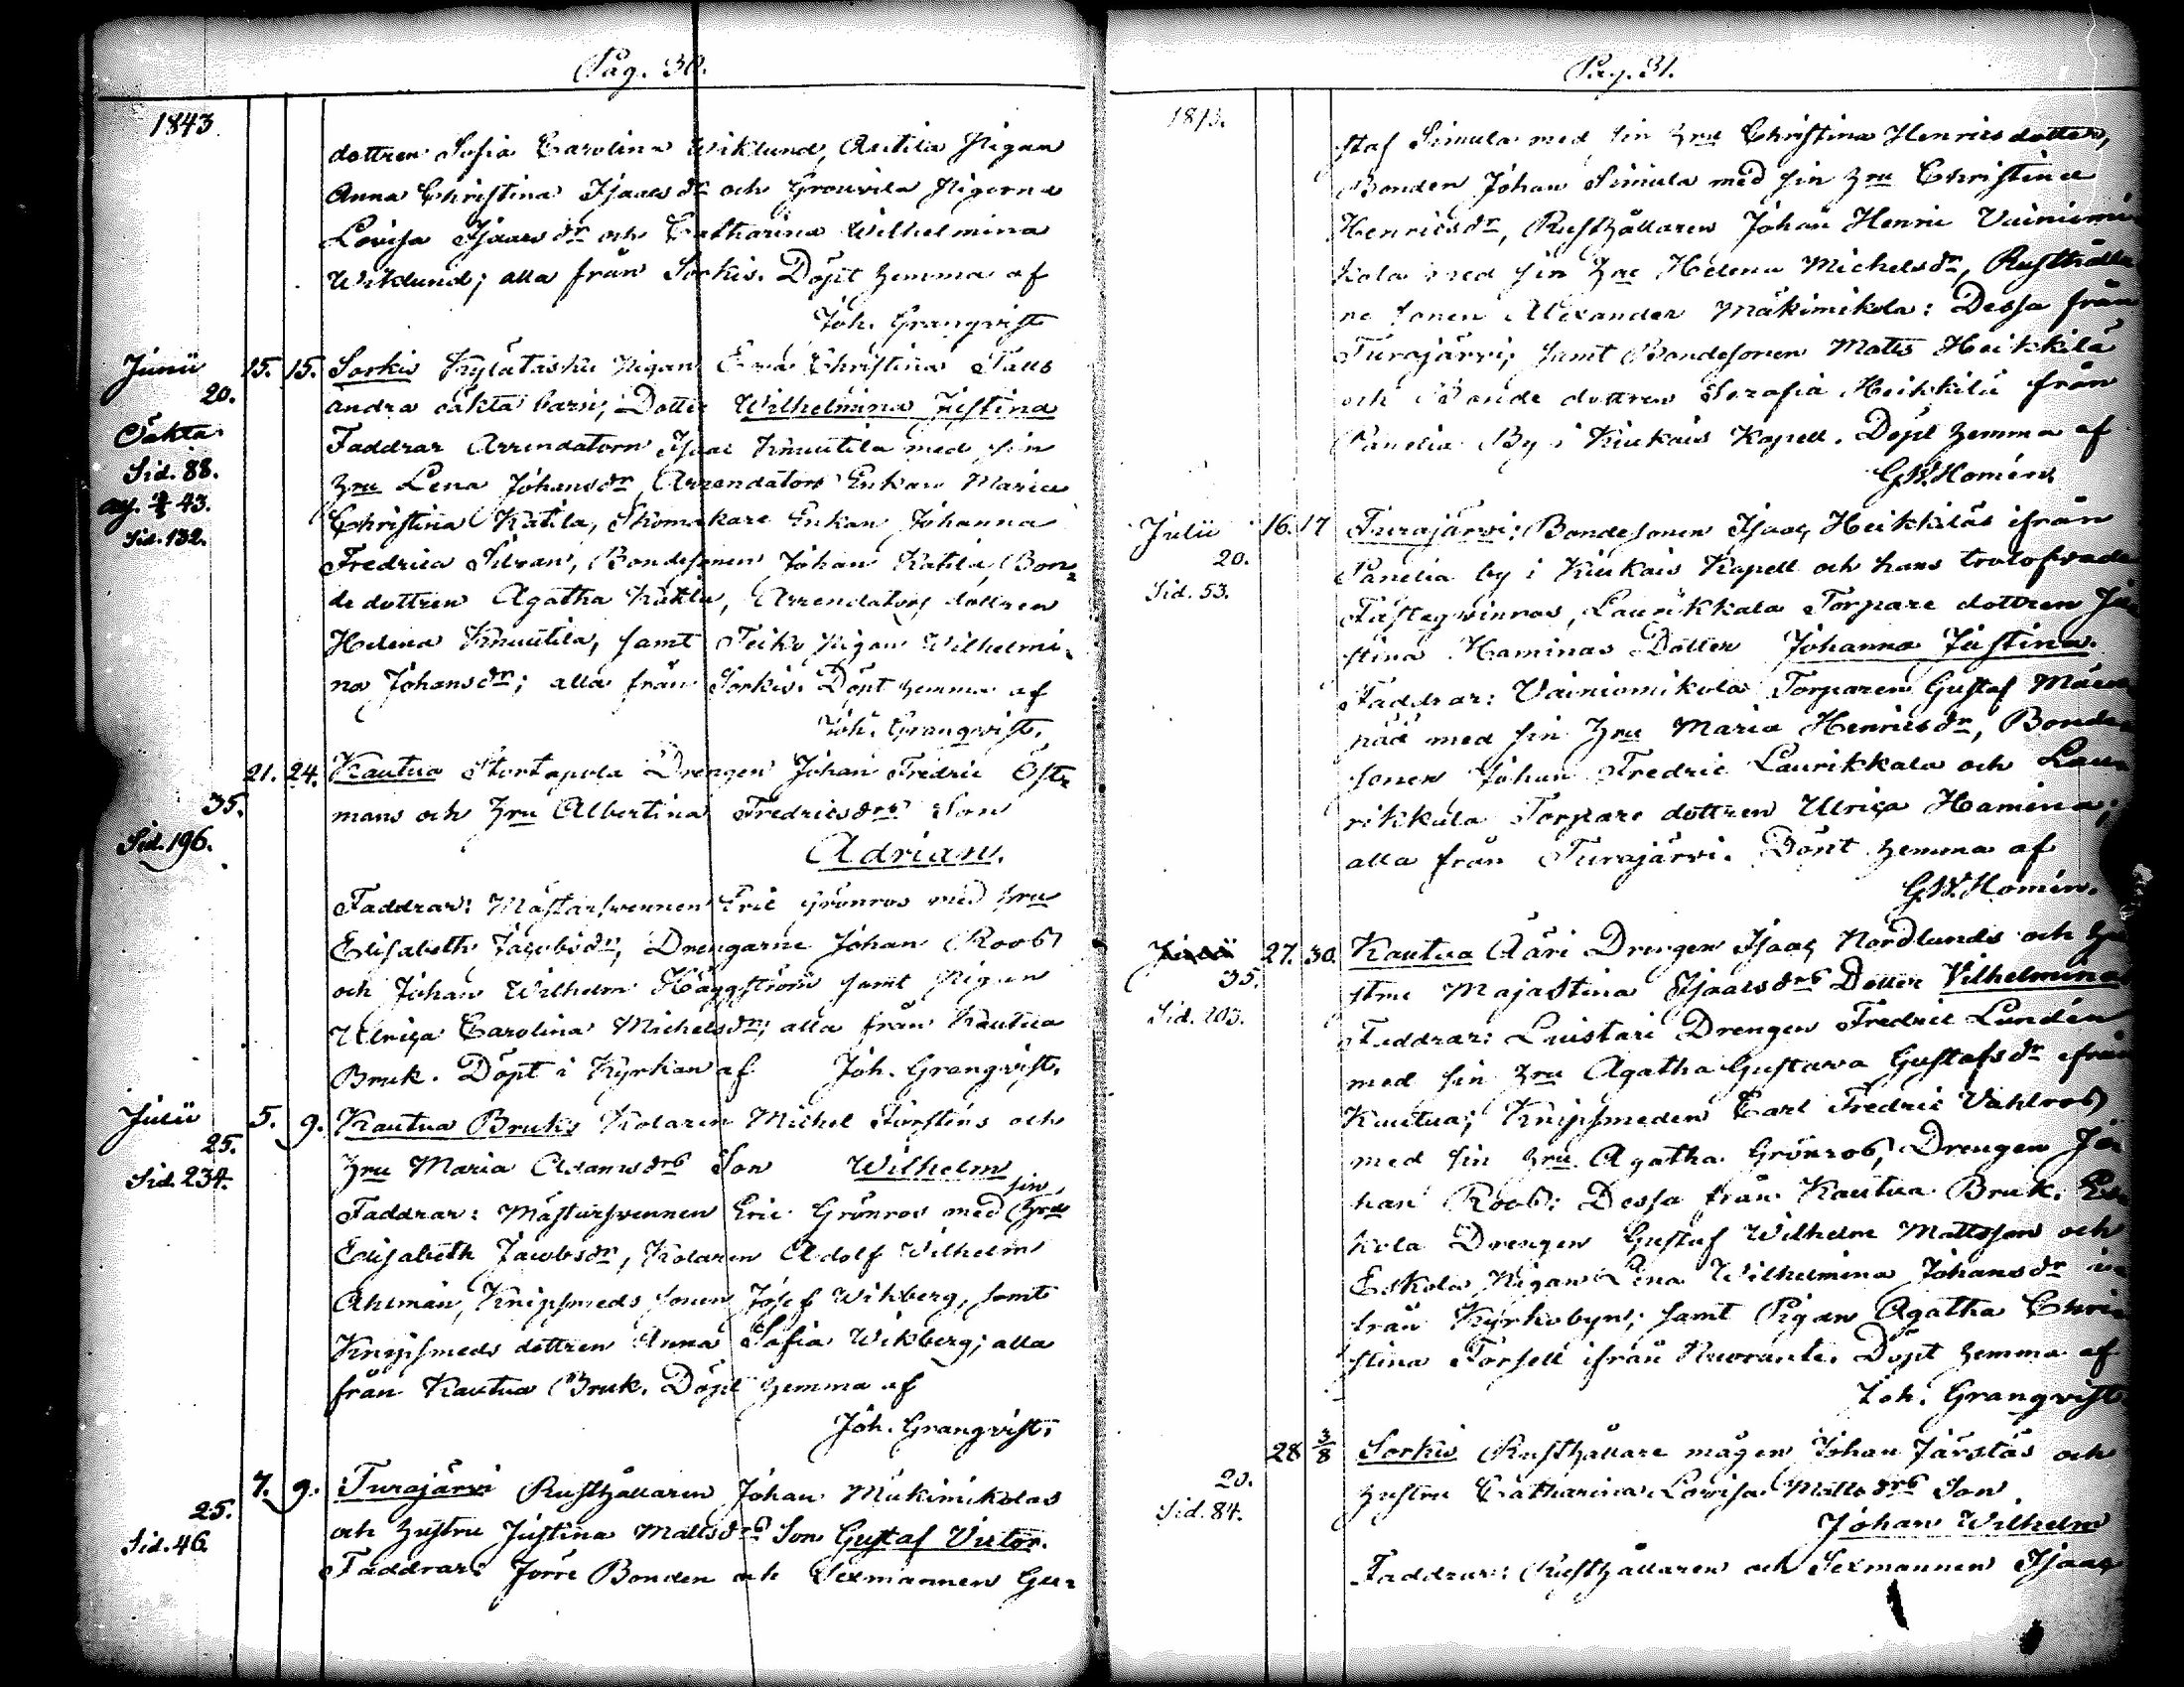 Pag. 30.
1843
dottren Sofia Carolina Wiklund, Antila Pigan
Anna Christina Isaacsdr och Grouvila Pigorna
Lovisa Isaacsdr och Catharina Wilhelmina
Wiklund; alla från Sorkis. Döpt hemma af
Joh. Granqvist
Junii 15. 15. Sorkis Kylätasku Pigan Eva Christina Talls
20. andra oäkta barn; Dotter Wilhelmina Justina
Oäkta Faddrar Arrendatorn Isaac Knuutila med sin
Sid. 88. hru Lena Johansdr, Arrendators Enkan Maria
43. Christina Katila, Skomakare Enkan Johanna
Sid. 132. Fredrica Silvan, Bondesonen Johan Katila, Bon=
de dottren Agatha Katila, Arrendators dottren
Helena Knuutila, samt Teiko Pigan Wilhelmi=
na Johansdr; alla från Sorkis. Döpt hemma af
Joh. Granqvist.
21. 24. Kautua Stortapola Drengen Johan Fredric Öst=
35. mans och hru Albertina Fredricsdrs Son
Sid. 196. Adrian.
Faddrar: Mästarsvennen Eric Grönros med hru
Elisabeth Jacobsdr, Drengarne Johan Roos
och Johan Wilhelm Häggström samt Pigan
Ulrica Carolina Michelsdr; alla från Kautua
Bruk. Döpt i Kyrkan af Joh. Granqvist.
Julii 5. 9. Kautua Bruks Kolaren Michel Forsténs och
25. hru Maria Adamsdrs Son Wilhelm
Sid. 234. Faddrar: Mästarsvennen Eric Grönros med sin hru
Elisabeth Jacobsdr, Kolaren Adolf Wilhelm
Ahlman, Knipsmeds sonen Josef Wikberg, samt
Knipsmeds dottren Anna Sofia Wikberg; alla
från Kautua Bruk. Döpt hemma af
Joh. Granqvist.
7. 9. Turajärvi Rusthållaren Johan Mäkimikolas
25. och hustru Justina Mattsdrs Son Gustaf Victor.
Sid. 46. Faddrar: Jorre Bonden och Sexmannen Gu=
Pag. 31.
1843.
staf Simula med sin hru Christina Henricsdotter,
Bonden Johan Simula med sin hru Christina
Henricsdr, Rusthållaren Johan Henric Vainiomi
kola med sin hru Helena Michelsdr, Rusthålla
re sonen Alexander Mäkimikola: Dessa från
Turajärvi; samt Bondesonen Matts Heikkilä
och Bonde dottren Serafia Heikkilä från
Panelia By i Kiukais Kapell. Döpt hemma af
G.W. Homén.
Julii 16. 17 Turajärvi: Bondesonen Isaac Heikkiläs ifrån
20. Panelia by i Kiukais Kapell och hans trolofvade
Sid. 53. Fästeqvinnas, Laurikkala Torpare dottren Ju
stina Haminas Dotter Johanna Justina.
Faddrar: Vainiomikola Torparen Gustaf
med sin hru Maria Henricsdr, Bonde
sonen Johan Fredric Laurikkala och Lau
rikkala Torpare dottren Ulrica Hamina;
alla från Turajärvi. Döpt hemma af
G.W. Homén.
27. 30. Kautua Ääri Drengen Isaac Nordlunds och hu
35. stru Majastina Isaacsdrs Dotter Vilhelmina
Sid. 203. Faddrar: Luistari Drengen Fredric Lundén
med sin hru Agatha Gustava Gustafsdr ifrån
Kautua; Knipsmeden Carl Fredric Vahlros
med sin hru Agatha Grönros, Drengen Jo
han Roos: Dessa från Kautua Bruk. Es
kola Drengen Gustaf Wilhelm Mattsson och
Eskola Pigan Lena Wilhelmina Johansdr
från Kyrkobyn; samt Pigan Agatha Chri
stina Forsell ifrån Döpt hemma af
Joh. Granqvist
28 3/8 Sorkis Rusthållare mågen Johan Järstäs och
20. hustru Catharina Lovisa Mattsdrs Son
Sid. 84. Johan Wilhelm
Faddrar: Rusthållaren och Sexmannen Isaac